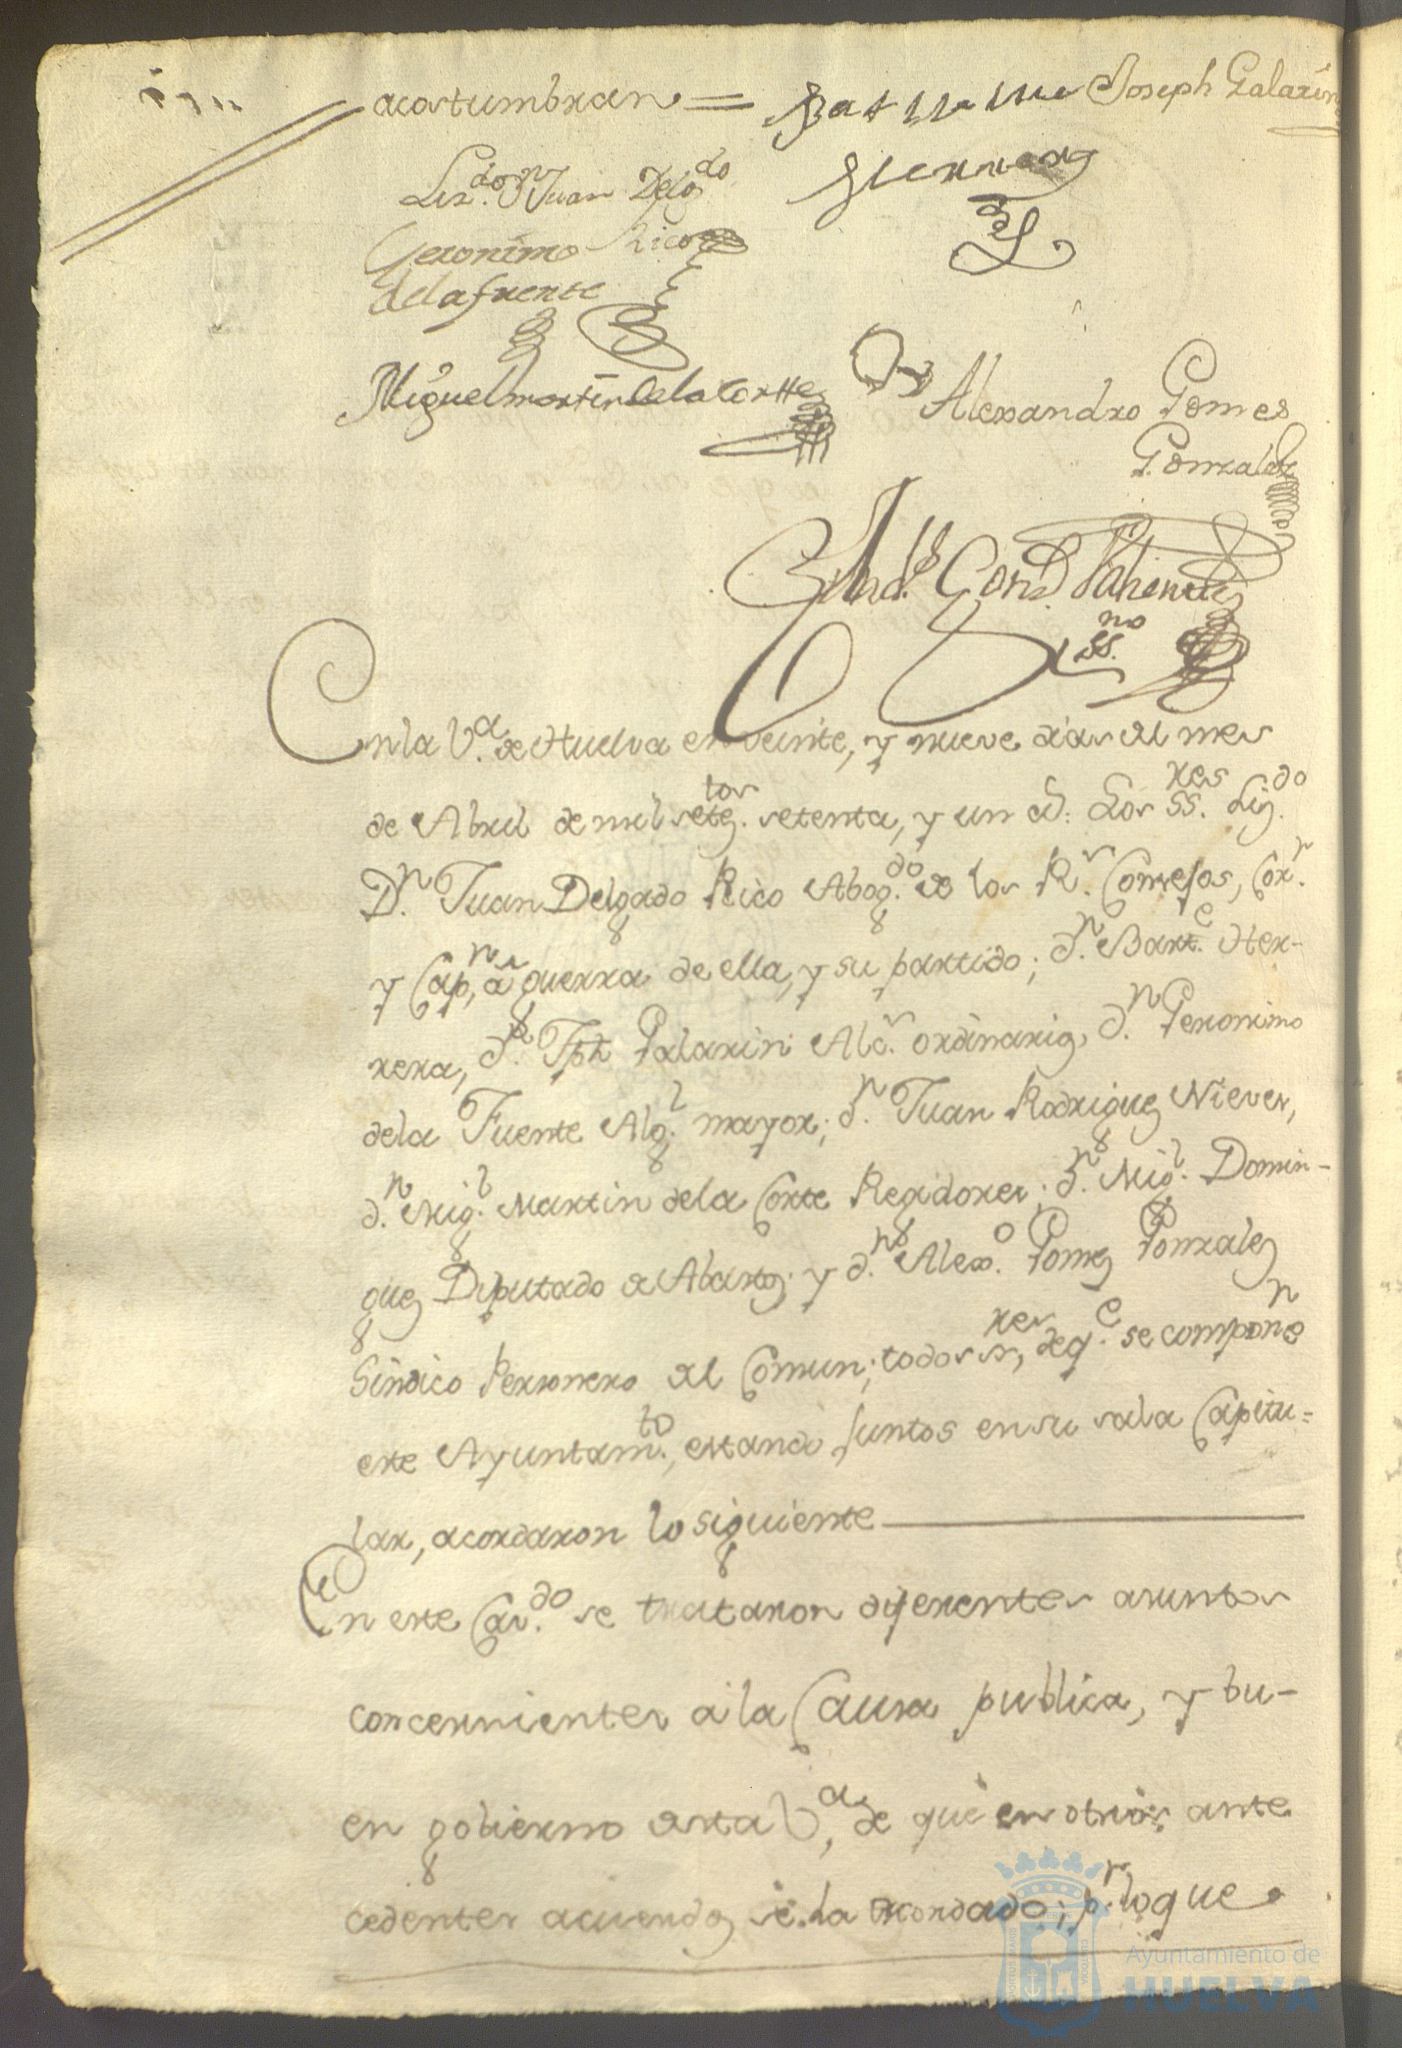 acostumbran = Bartolome Joseph Galarin
Liz.do Dn Juan Delg.do Herrera
Rico
Geronimo
delafuente
Miguel martin delaCortte
Alexandro Gomes
Gonzalez
ss.no
En la V.a de Huelva en veinte, y nueve dias del mes
de Abril de mil setez.tos setenta, y un a.s Los SS.res Liz.do
D.n Juan Delgado Rico Abog.do de los R.s Consejos, Cor.r
y Cap.n a guerra de ella, y su partido; d.n Bart.e Her-
rera, d.n Jph Galarin Alc.s ordinarios, d.n Geronimo
dela Fuente Alg.l mayor; d.n Juan Rodriguez Nieves,
d.n Mig.l Martin dela Corte Regidores; d.n Mig.l Domin-
guez Diputado de Abastos; y d.n Alex.o Gomez Gonzalez
Sindico Personero del Comun; todos ss.res, de q.e se compone
este Ayuntam.to, estando juntos en su sala Capitu=
lar, acordaron lo siguiente
En este Cav.do se trataron diferentes asuntos
concernientes a la Causa publica, y bu-
en gobierno desta V.a, de que en otros ante
cedentes acuerdos se ha acordado; p.r lo que
Ayuntamiento de
HUELVA